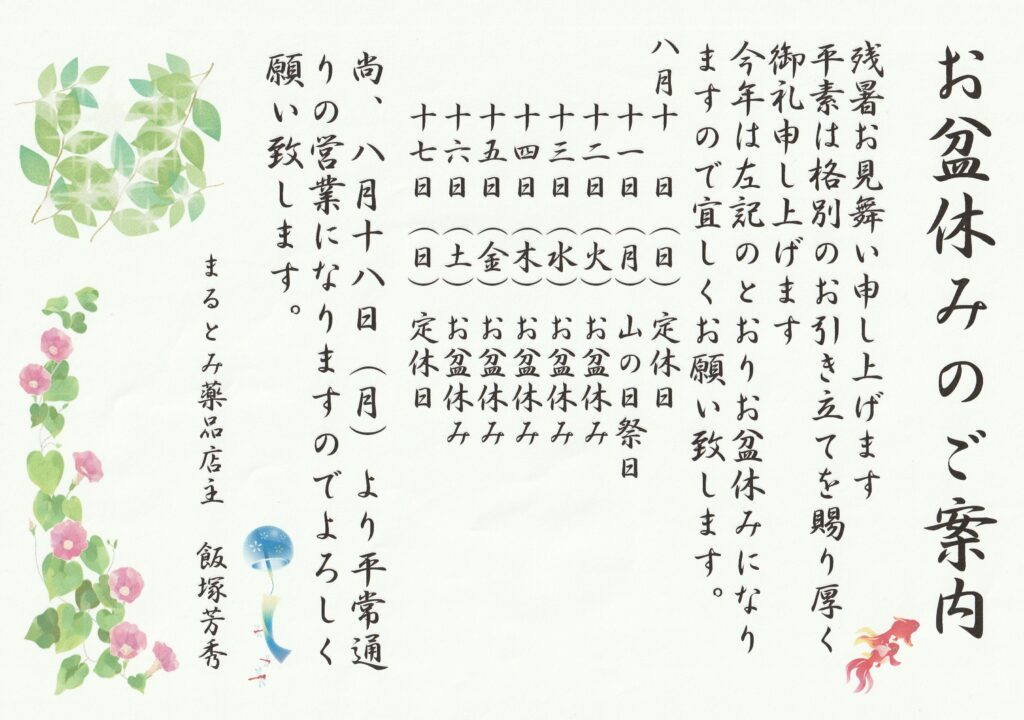 お盆休みのご案内
残暑お見舞い申し上げます
平素は格別のお引き立てを賜り厚く
御礼申し上げます
今年は左記のとおりお盆休みになり
ますので宜しくお願い致します。
八月十　日（日）定休日
十一日（月）山の日祭日
十二日（火）お盆休み
十三日（水）お盆休み
十四日（木）お盆休み
十五日（金）お盆休み
十六日（土）お盆休み
十七日（日）定休日
尚、八月十八日（月）より平常通
りの営業になりますのでよろしく
願い致します。
まるとみ薬品店主　飯塚芳秀